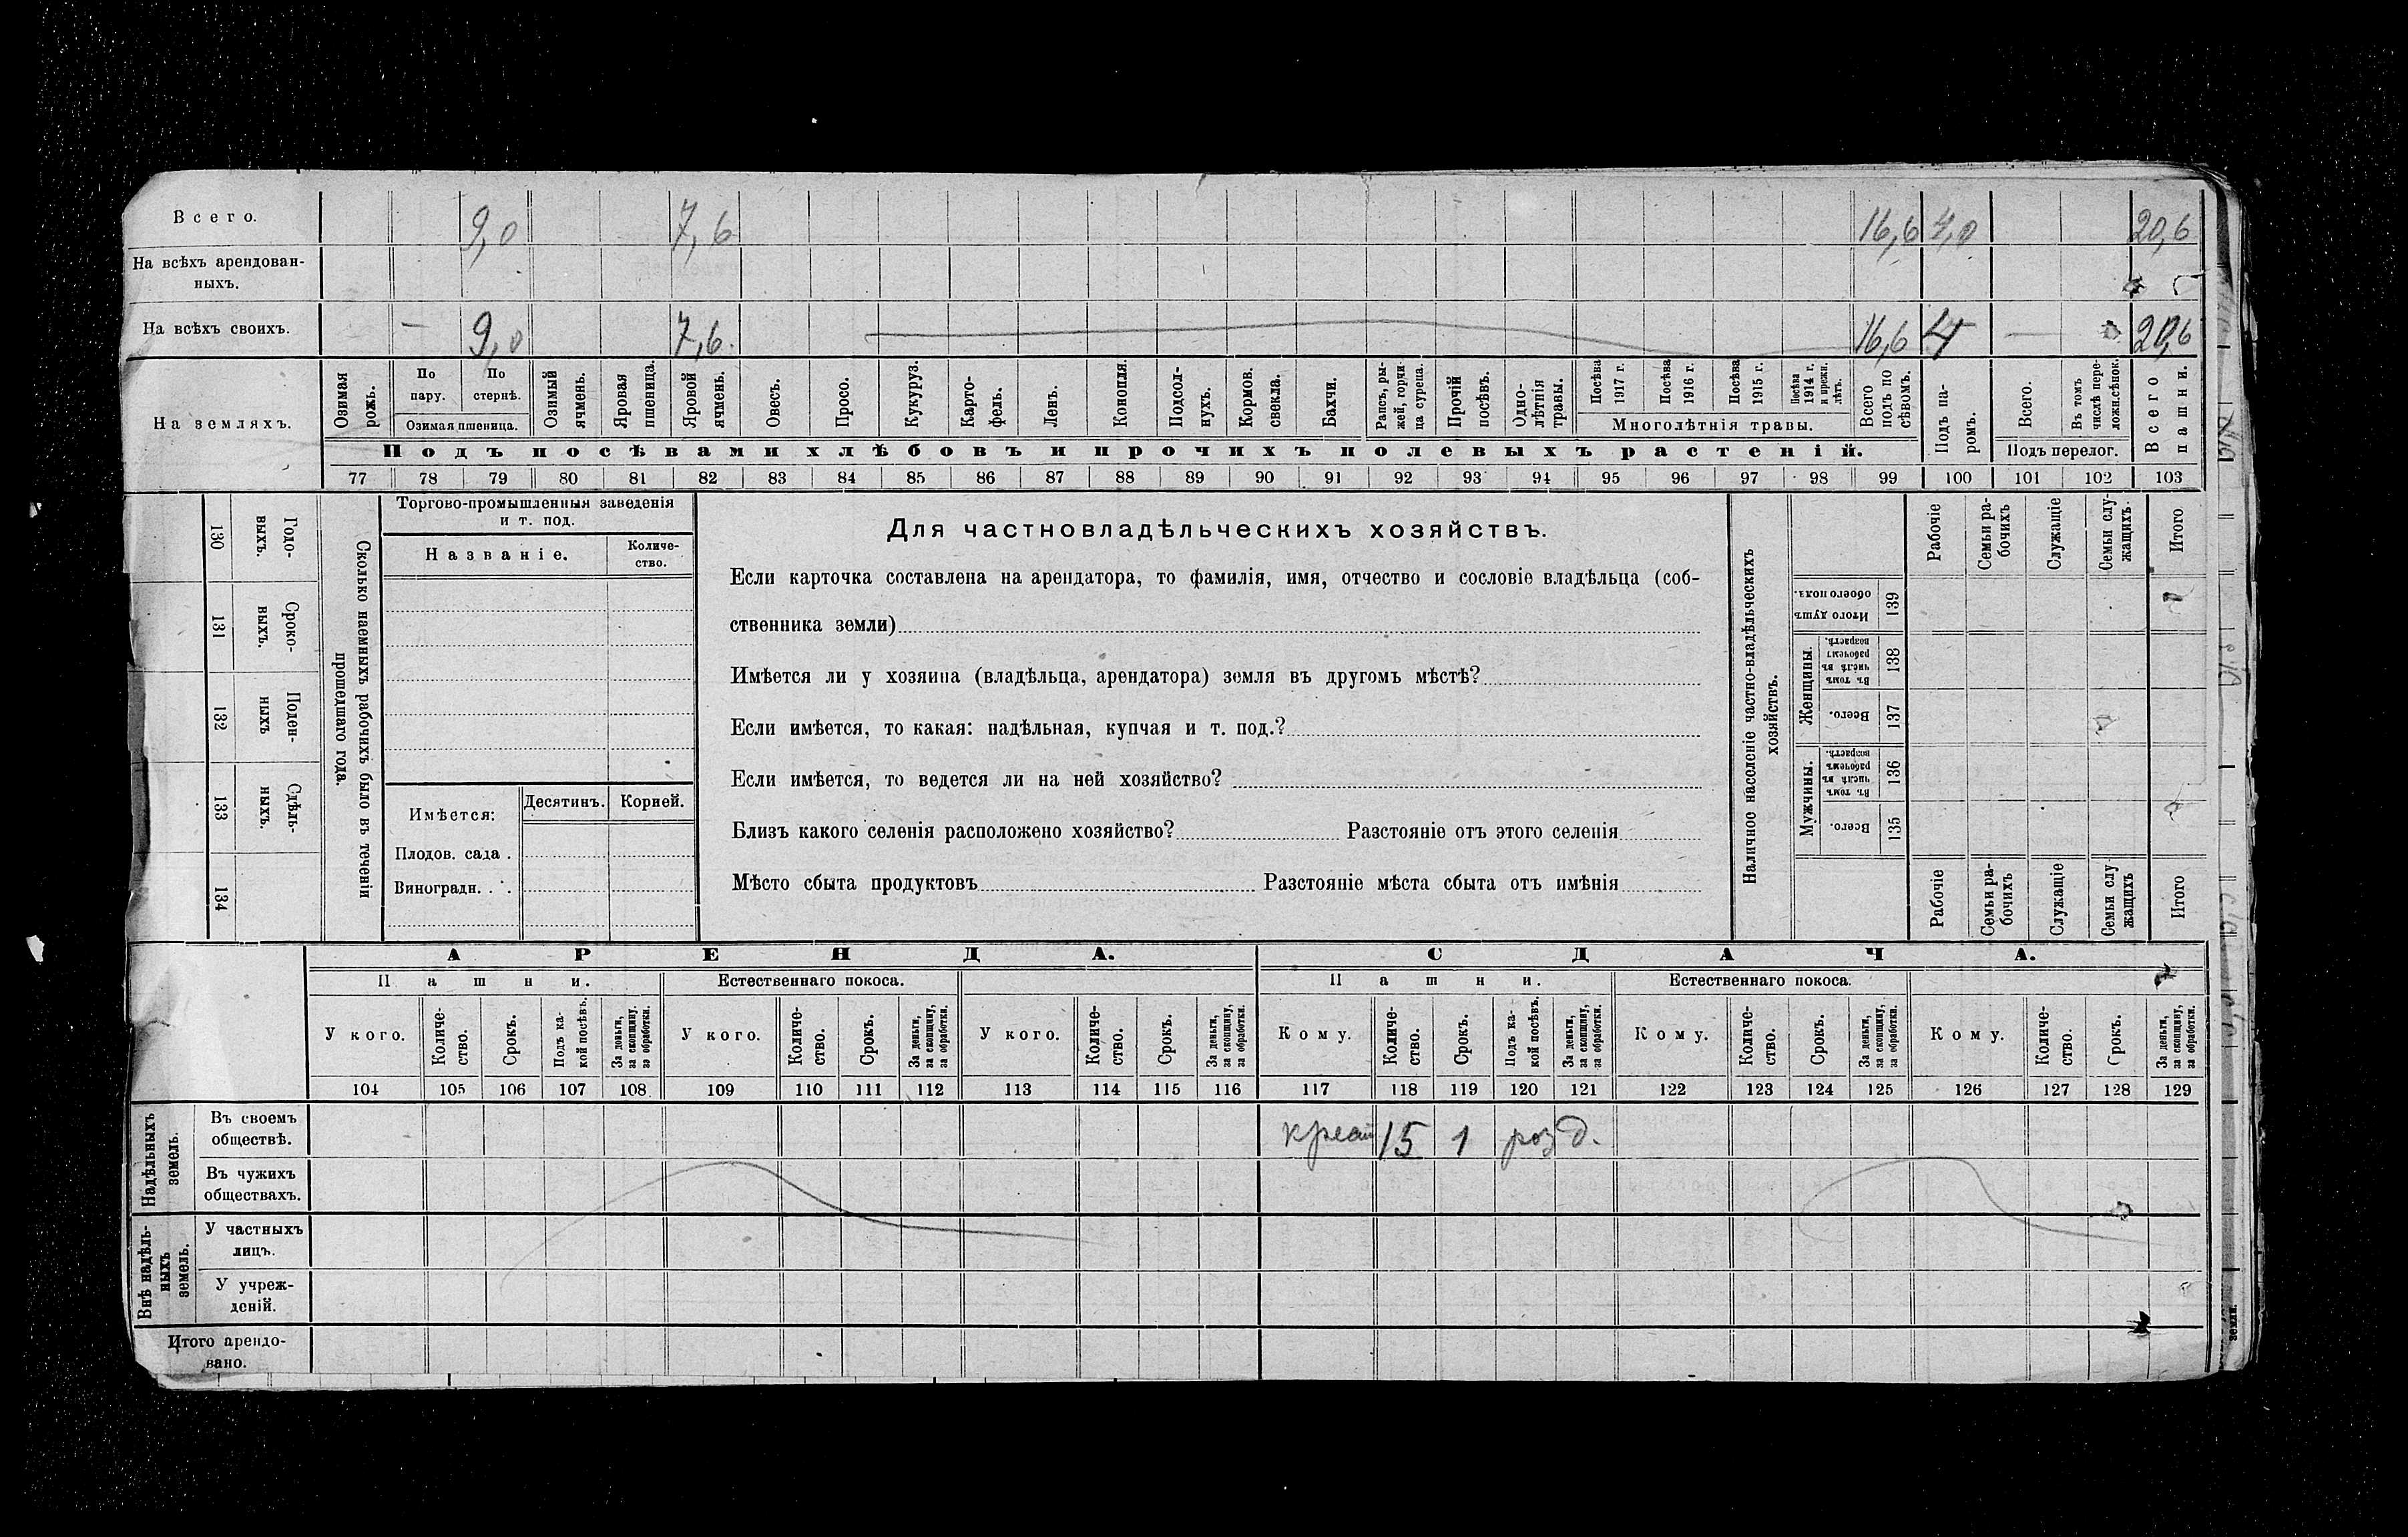 Всего. 9,0 7,6 16,6 4,0 20,6
На всѣхъ арендован-
ныхъ.
На всѣхъ своихъ. — 9,0 7,6. 16,6 4 — 20,6
На земляхъ.
Озимая рожь.
По пару.
По стернѣ.
Озимая пшеница.
Озимый ячмень.
Яровая пшеница.
Яровой ячмень.
Овесъ.
Просо.
Кукуруз.
Карто-
фель.
Ленъ.
Конопля.
Подсол-
нухъ.
Кормов. свекла.
Бахчи.
Рапсъ, ры-
жей, горчи-
ца сурепа.
Прочій посѣвъ.
Одно-
лѣтнія травы.
Посѣва 1917 г.
Посѣва 1916 г.
Посѣва 1915 г.
Посѣва 1914 г. и прежн. лѣтъ.
Многолѣтнія травы.
Всего подъ по
сѣвомъ.
Подъ па-
ромъ.
Всего.
Въ томъ числѣ пере-
ложн. сѣнок.
Подъ перелог.
Всего пашни.
Подъ посѣвами хлѣбовъ и прочихъ полевыхъ растеній.
77 78 79 80 81 82 83 84 85 86 87 88 89 90 91 92 93 94 95 96 97 98 99 100 101 102 103
130 Годо-
выхъ.
131 Сроко-
выхъ.
132 Поден-
ныхъ
133 Сдѣль-
ныхъ.
134
Сколько наемныхъ рабочихъ было въ теченіи
прошедшаго года.
Торгово-промышленныя заведенія
и т. под.
Названіе.
Количе-
ство.
Имѣется:
Десятинъ. Корней.
Плодов. сада .
Виноградн. . .
Для частновладѣльческихъ хозяйствъ.
Если карточка составлена на арендатора, то фамилія, имя, отчество и сословіе владѣльца (соб-
ственника земли)
Имѣется ли у хозяина (владѣльца, арендатора) земля въ другомъ мѣстѣ?
Если имѣется, то какая: надѣльная, купчая и т. под.?
Если имѣется, то ведется ли на ней хозяйство?
Близъ какого селенія расположено хозяйство? Разстояніе отъ этого селенія
Мѣсто сбыта продуктовъ Разстояніе мѣста сбыта отъ имѣнія
Наличное населеніе частно-владѣльческихъ
хозяйствъ.
Рабочіе
Семьи ра-
бочихъ
Служащіе
Семьи слу-
жащихъ.
Итого
Итого душъ обоего пола. 139
Женщины.
Въ томъ числѣ въ рабочемъ возрастѣ. 138
Всего. 137
Мужчины.
Въ томъ числѣ въ рабочемъ возрастѣ. 136
Всего. 135
Рабочіе
Семьи ра-
бочихъ
Служащіе
Семьи слу
жащихъ
Итого
АРЕНДА. СДАЧА.
Пашни. Естественнаго покоса. Пашни. Естественнаго покоса.
У кого.
Количе-
ство.
Срокъ.
Подъ ка-
кой посѣвъ.
За деньги, за скопщину, за обработки.
У кого.
Количе-
ство.
Срокъ.
За деньги, за скопщину, за обработки.
У кого.
Количе-
ство.
Срокъ.
За деньги, за скопщину, за обработки.
Кому.
Количе-
ство.
Срокъ.
Подъ ка-
кой посѣвъ.
За деньги, за скопщину, за обработки.
Кому.
Количе-
ство.
Срокъ.
За деньги, за скопщину, за обработки.
Кому.
Количе-
ство.
Срокъ.
За деньги, за скопщину, за обработки.
104 105 106 107 108 109 110 111 112 113 114 115 116 117 118 119 120 121 122 123 124 125 126 127 128 129
Надѣльныхъ
земель.
Въ своемъ
обществѣ. 15 1 д.
Въ чужихъ
обществахъ.
Внѣ надѣль-
ныхъ
земель.
У частныхъ
лицъ.
У учреж-
деній.
Итого арендо-
вано.